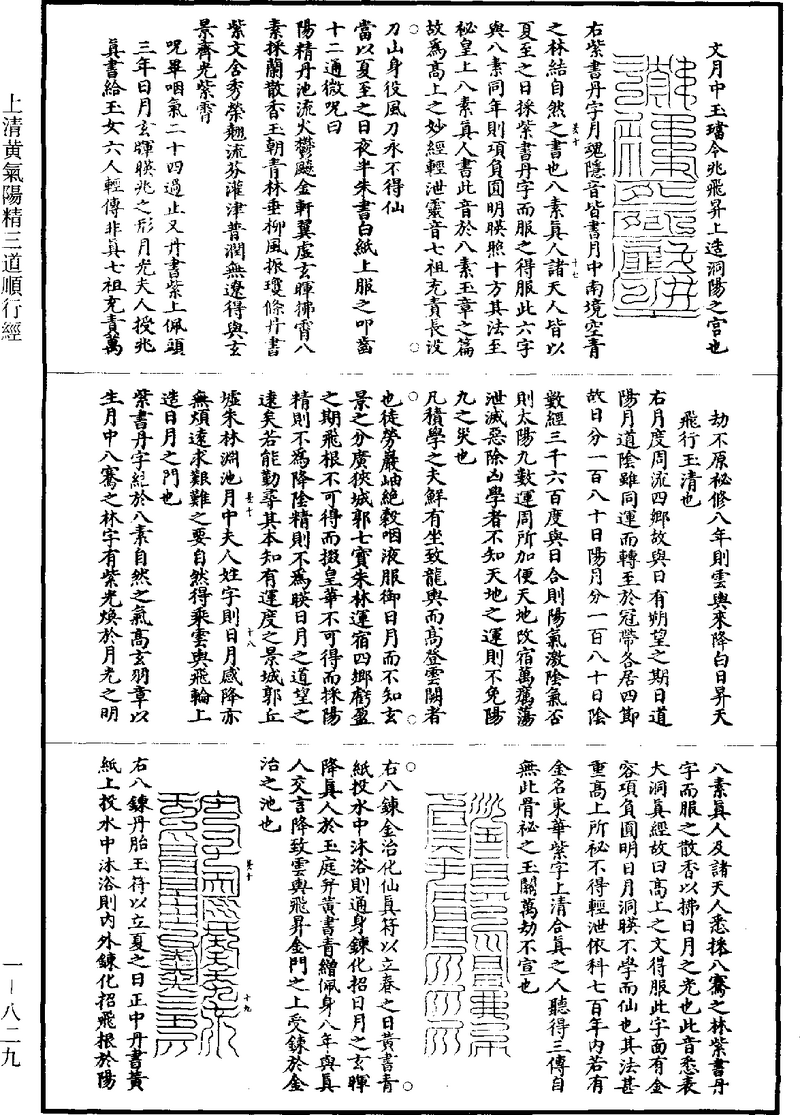 上清黃氣陽精三道順行經
一–八二九
文月中玉璫令兆飛昇上造洞陽之宮也
右紫書丹字月魂隱音皆書月中南境空青
之林結自然之書也八素真人諸天人皆以
夏至之日採紫書丹字而服之得服此六字
與八素同年則項負圓明暎照十方其法至
祕皇上八素真人書此音於八素玉章之篇
故為高上之妙經輕泄靈音七祖充責長沒
刀山身役風刀永不得仙
當以夏至之日夜半朱書白紙上服之叩齒
十二通微呪曰
陽精丹池流火鬱飈金軒翼虛玄暉拂霄八
素採蘭散香玉朝青林垂柳風振瓊條丹書
紫文含秀榮翹流芬灌津普潤無遼得與玄
景齊光紫霄
呪畢咽氣二十四過止又丹書紫上佩頭
三年日月玄暉暎兆之形月光夫人授兆
真書給玉女六人輕傳非真七祖充責萬
劫不原祕修八年則雲輿來降白日昇天
飛行玉清也
右月度周流四鄉故與日有朔望之期日道
陽月道陰雖同運而轉至於冠帶各居四節
故日分一百八十日陽月分一百八十日陰
數經三千六百度與日合則陽氣激陰氣否
則太陽九數運周所加便天地改宿萬炁蕩
泄滅惡除凶學者不知天地之運則不免陽
九之災也
凡積學之夫鮮有坐致龍輿而高登雲闕者
也徒勞巖岫絕穀咽液服御日月而不知玄
景之分廣狹城郭七寶朱林運宿四鄉虧盈
之期飛根不可得而掇皇華不可得而採陽
精則不為降陰精則不為暎日月之道望之
遠矣若能勤尋其本知有運度之景城郭丘
墟朱林淵池月中夫人姓字則日月感降亦
無煩遠求艱難之要自然得乘雲輿飛輪上
造日月之門也
紫書丹字經於八素自然之氣高玄羽章以
生月中八騫之林字有紫光煥於月光之明
八素真人及諸天人悉採八騫之林紫書丹
字而服之散香以拂日月之光也此音悉表
大洞真經故曰高上之文得服此字面有金
容項負圓明日月洞暎不學而仙也其法甚
重高上所祕不得輕泄依科七百年內若有
金名東華紫字上清合真之人聽得三傳自
無此骨祕之玉關萬劫不宣也
右八鍊金冶化仙真符以立春之日黃書青
紙投水中沐浴則通身鍊化招日月之玄暉
降真人於玉庭并黃書青繒佩身八年與真
人交言降致雲輿飛昇金門之上受鍊於金
冶之池也
右八鍊丹胎玉符以立夏之日正中丹書黃
紙上投水中沐浴則內外鍊化招飛根於陽